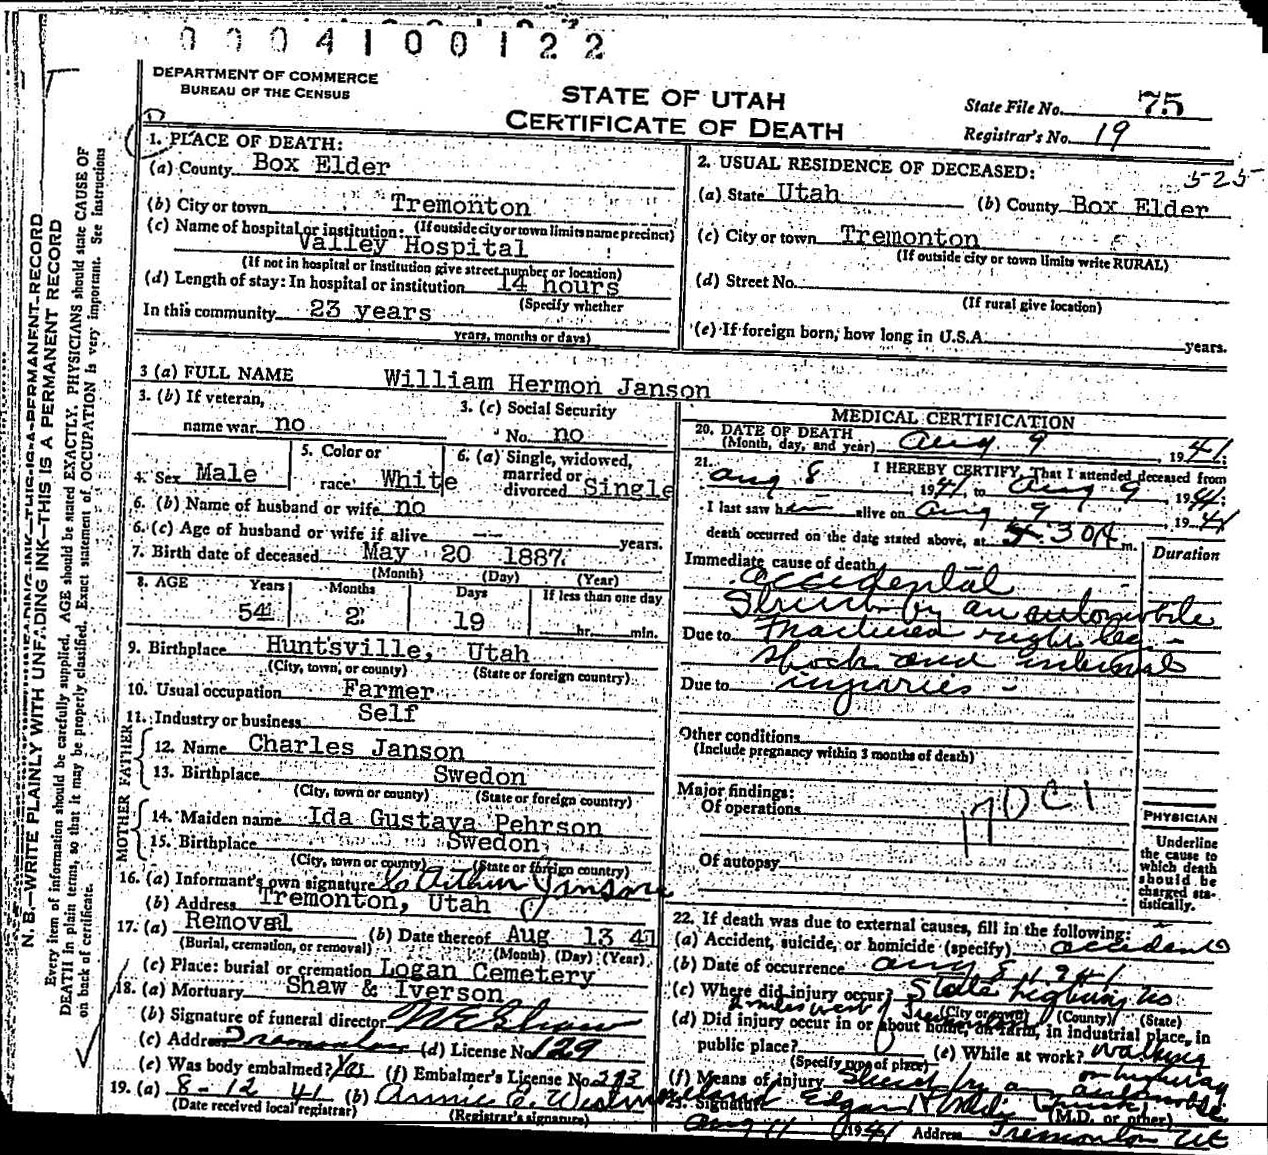 0004100122
DEPARTMENT OF COMMERCE
BUREAU OF THE CENSUS
STATE OF UTAH
CERTIFICATE OF DEATH
State File No. 75
Registrar's No. 19
525
N. B.—WRITE PLAINLY WITH UNFADING INK—THIS IS A PERMANENT RECORD
Every item of information should be carefully supplied. AGE should be stated EXACTLY. PHYSICIANS should state CAUSE OF
DEATH in plain terms, so that it may be properly classified. Exact statement of OCCUPATION is very important. See Instructions
on back of certificate.
1. PLACE OF DEATH:
(a) County Box Elder
(b) City or town Tremonton
(If outside city or town limits name precinct)
(c) Name of hospital or institution:
Valley Hospital
(If not in hospital or institution give street number or location)
(d) Length of stay: In hospital or institution 14 hours
(Specify whether
In this community 23 years
years, months or days)
2. USUAL RESIDENCE OF DECEASED:
(a) State Utah (b) County Box Elder
(c) City or town Tremonton
(If outside city or town limits write RURAL)
(d) Street No.
(If rural give location)
(e) If foreign born, how long in U.S.A. years.
3 (a) FULL NAME William Hermon Janson
3. (b) If veteran,
name war no
3. (c) Social Security
No. no
4. Sex Male
5. Color or
race White
6. (a) Single, widowed,
married or
divorced Single
6. (b) Name of husband or wife no
6. (c) Age of husband or wife if alive -- years.
7. Birth date of deceased May 20 1887
(Month) (Day) (Year)
8. AGE Years Months Days If less than one day
54 2 19 hr. min.
9. Birthplace Huntsville, Utah
(City, town, or county) (State or foreign country)
10. Usual occupation Farmer
11. Industry or business Self
FATHER
12. Name Charles Janson
13. Birthplace Swedon
(City, town or county) (State or foreign country)
MOTHER
14. Maiden name Ida Gustava Pehrson
15. Birthplace Swedon
(City, town or county) (State or foreign country)
16. (a) Informant's own signature C Arthur Janson
(b) Address Tremonton, Utah
17. (a) Removal (b) Date thereof Aug 13 41
(Burial, cremation, or removal) (Month) (Day) (Year)
(c) Place: burial or cremation Logan Cemetery
18. (a) Mortuary Shaw & Iverson
(b) Signature of funeral director W E Shaw
(c) Address Tremonton (d) License No. 129
(e) Was body embalmed? Yes (f) Embalmer's License No. 293
19. (a) 8-12 41 (b) Annie C. Westmoreland
(Date received local registrar) (Registrar's signature)
MEDICAL CERTIFICATION
20. DATE OF DEATH
(Month, day, and year) Aug 9, 1941.
21. I HEREBY CERTIFY, That I attended deceased from
Aug 8 1941, to Aug 9, 1941.
I last saw him alive on Aug 9, 1941
death occurred on the date stated above, at 5 30 A m.
Duration
Immediate cause of death
accidental
Struck by an automobile
Due to Fractured right leg -
shock and internal
Due to injuries -
Other conditions
(Include pregnancy within 3 months of death)
Major findings:
Of operations
170C1
Of autopsy
PHYSICIAN
Underline
the cause to
which death
should be
charged sta-
tistically.
22. If death was due to external causes, fill in the following:
(a) Accident, suicide, or homicide (specify) accident
(b) Date of occurrence Aug 8 1941
(c) Where did injury occur? State highway no
2 miles west
(City or town) (County) (State)
(d) Did injury occur in or about home, on farm, in industrial place, in
public place? (e) While at work? Walking
(Specify type of place) on highway
(f) Means of injury Struck by an automobile
23. Signature Edgar H (M.D. or other)
Aug 11 1941 Address Tremonton Ut